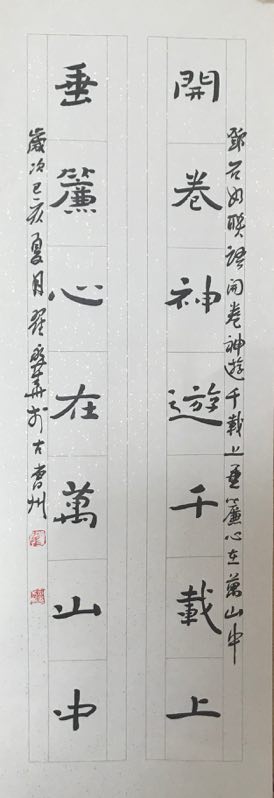 鄧石如聯語開卷神遊千載上垂簾心在萬山中
開卷神遊千載上
垂簾心在萬山中
歲次己亥夏月於古曹州